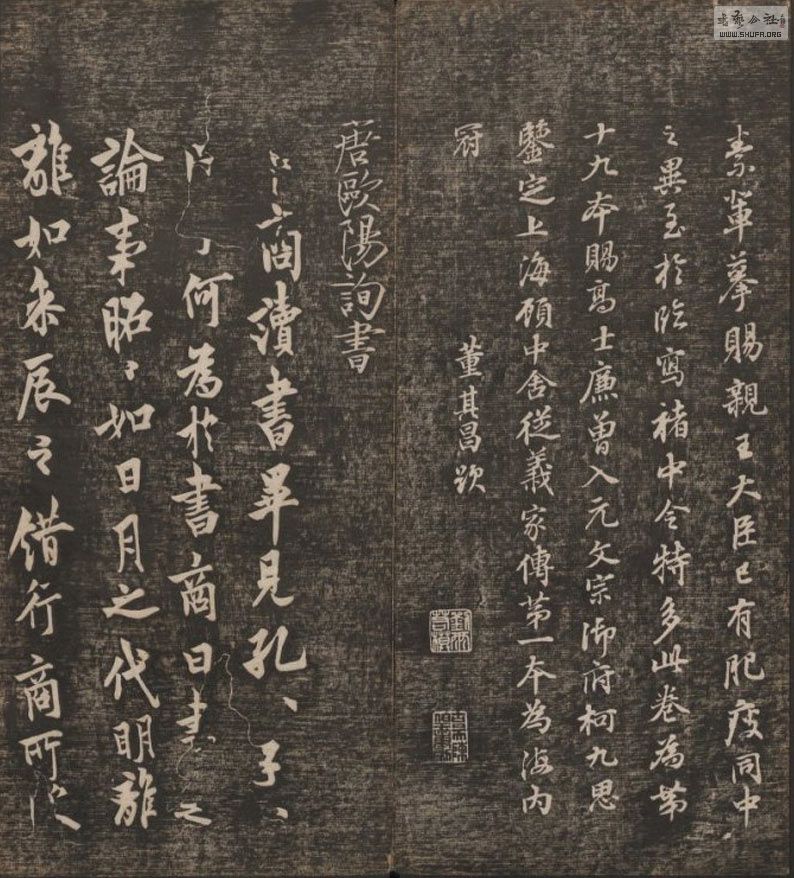 素軰摹賜親王大臣已有肥瘦同中
之異至於臨寫褚中令特多此卷為第
十九本賜高士廉曾入元文宗御府柯九思
鑒定上海顧中舍從義家傳第一本為海内
冠
董其昌跋
唐歐陽詢書
卜商讀書畢見孔〻子〻
何為於書商曰書之
論事昭〻如日月之代明離
離如參辰之錯行商所受
書藝公社
WWW.SHUFA.ORG